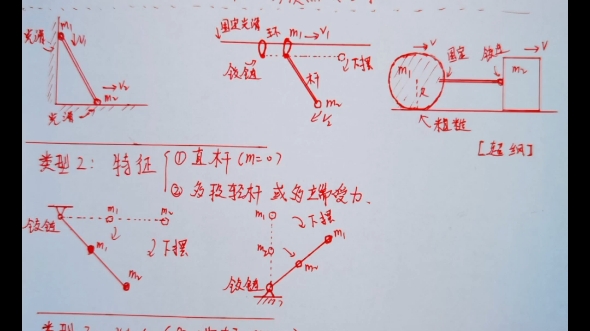 光滑
m₁
v₁
v₂
m₂
光滑
固定光滑
环
m₁
v₁
铰链
杆
下摆
m₂
v₂
v
固定
铰链
v
m₁
R
m₂
粗糙
[超纲]
类型2: 特征 ① 直杆(m=0)
② 多段轻杆 或多端受力.
铰链
m₁
m₂
m₁
m₂
下摆
m₁
m₂
下摆
m₁
m₂
铰链